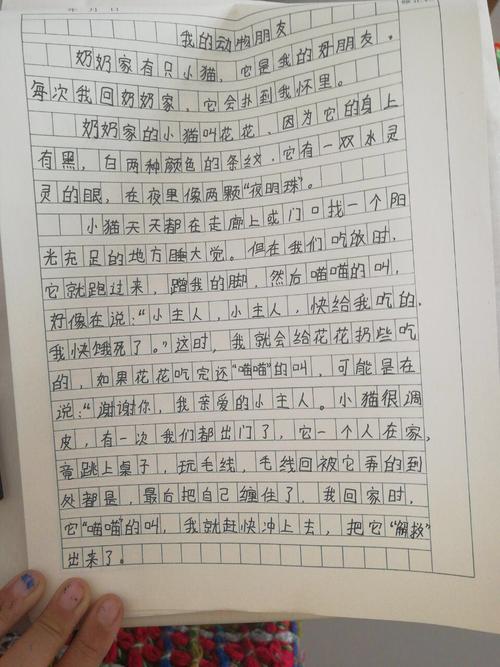 年 月 日
我的动物朋友
奶奶家有只小猫，它是我的好朋友，
每次我回奶奶家，它会扑到我怀里。
奶奶家的小猫叫花花，因为它的身上
有黑，白两种颜色的条纹，它有一双水灵
灵的眼，在夜里像两颗“夜明珠”。
小猫天天都在走廊上或门口找一个阳
光充足的地方睡大觉。但在我们吃饭时，
它就跑过来，蹭我的脚，然后喵喵的叫，
好像在说：“小主人，小主人，快给我吃的，
我快饿死了。”这时，我就会给花花扔些吃
的，如果花花吃完还“喵喵”的叫，可能是在
说：“谢谢你，我亲爱的小主人。小猫很调
皮，有一次我们都出门了，它一个人在家，
竟跳上桌子，玩毛线，毛线回被它弄的到
处都是，最后把自己缠住了，我回家时，
它“喵喵”的叫，我就赶快冲上去，把它“解救”
出来了。